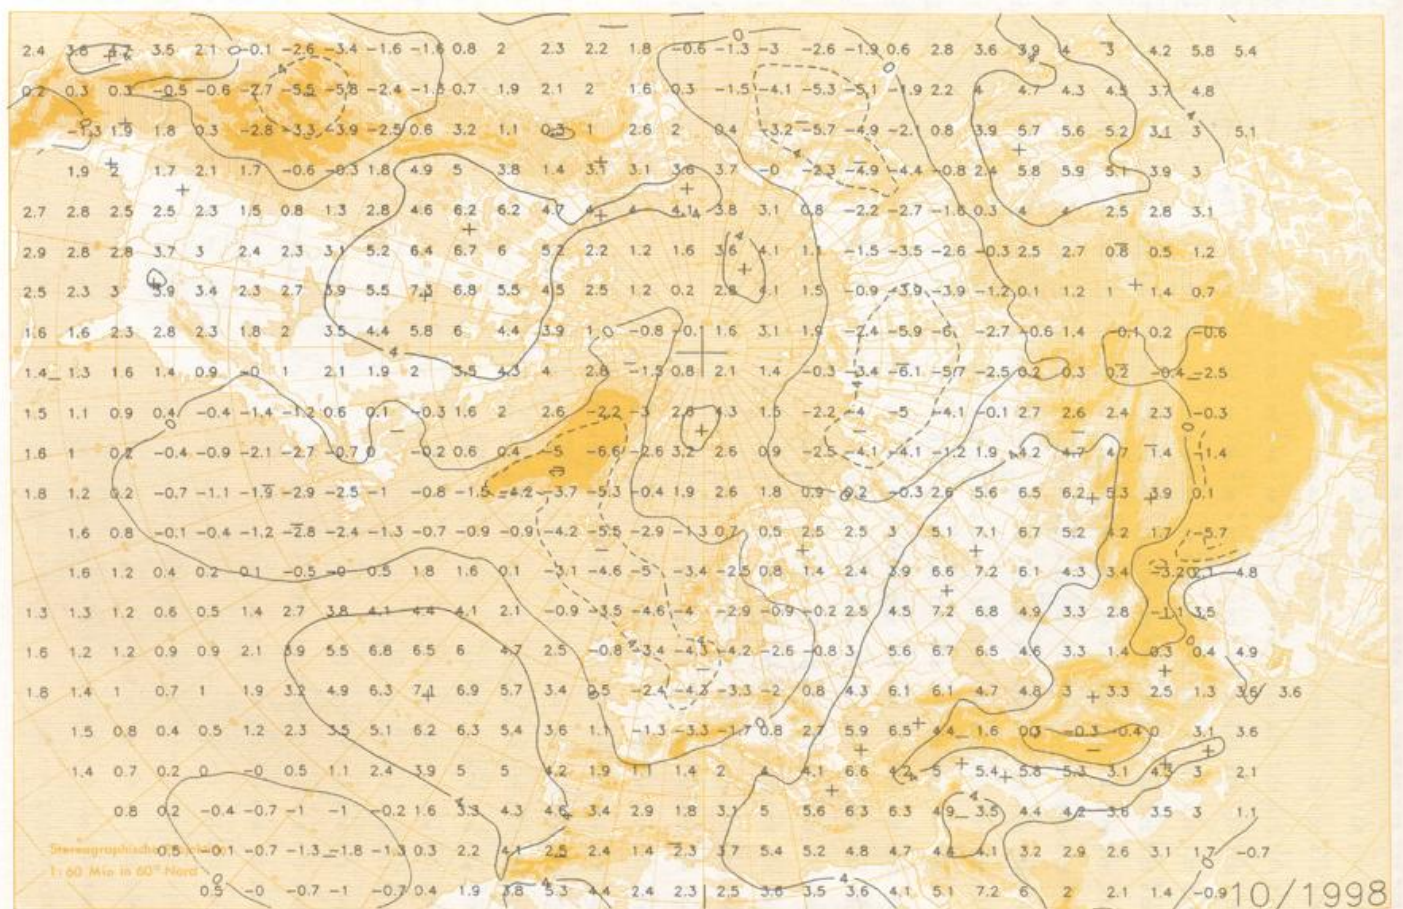 2.4 3.6 4.7 3.5 2.1 0 -0.1 -2.6 -3.4 -1.6 -1.6 0.8 2 2.3 2.2 1.8 -0.6 -1.3 -3 -2.6 -1.9 0.6 2.8 3.6 3.9 4 3 4.2 5.8 5.4
0.2 0.3 0.3 -0.5 -0.6 -2.7 -5.5 -5.8 -2.4 -1.3 0.7 1.9 2.1 2 1.6 0.3 -1.5 -4.1 -5.3 -5.1 -1.9 2.2 4 4.7 4.3 4.5 3.7 4.8
-1.3 1.9 1.8 0.3 -2.8 -3.3 -3.9 -2.5 0.6 3.2 1.1 0.3 1 2.6 2 0.4 -3.2 -5.7 -4.9 -2.1 0.8 3.9 5.7 5.6 5.2 3.1 3 5.1
1.9 2 1.7 2.1 1.7 -0.6 -0.3 1.8 4.9 5 3.8 1.4 3.1 3.1 3.6 3.7 -0 -2.3 -4.9 -4.4 -0.8 2.4 5.8 5.9 5.1 3.9 3
2.7 2.8 2.5 2.5 2.3 1.5 0.8 1.3 2.8 4.6 6.2 6.2 4.7 4 4 4.1 3.8 3.1 0.8 -2.2 -2.7 -1.8 0.3 4 4 2.5 2.8 3.1
2.9 2.8 2.8 3.7 3 2.4 2.3 3.1 5.2 6.4 6.7 6 5.2 2.2 1.2 1.6 3.6 4.1 1.1 -1.5 -3.5 -2.6 -0.3 2.5 2.7 0.8 0.5 1.2
2.5 2.3 3 3.9 3.4 2.3 2.7 3.9 5.5 7.3 6.8 5.5 4.5 2.5 1.2 0.2 2.8 4.1 1.5 -0.9 -3.9 -3.9 -1.2 0.1 1.2 1 1.4 0.7
1.6 1.6 2.3 2.8 2.3 1.8 2 3.5 4.4 5.8 6 4.4 3.9 1 0 -0.8 -0.1 1.6 3.1 1.9 -2.4 -5.9 -6 -2.7 -0.6 1.4 -0.1 0.2 -0.6
1.4 1.3 1.6 1.4 0.9 -0 1 2.1 1.9 2 3.5 4.3 4 2.8 -1.5 0.8 2.1 1.4 -0.3 -3.4 -6.1 -5.7 -2.5 0.2 0.3 0.2 -0.4 -2.5
1.5 1.1 0.9 0.4 -0.4 -1.4 -1.2 0.6 0.1 -0.3 1.6 2 2.6 -2.2 -3 2.8 4.3 1.5 -2.2 -4 -5 -4.1 -0.1 2.7 2.6 2.4 2.3 -0.3
1.6 1 0.2 -0.4 -0.9 -2.1 -2.7 -0.7 0 -0.2 0.6 0.4 -5 -6.6 -2.6 3.2 2.6 0.9 -2.5 -4.1 -4.1 -1.2 1.9 4.2 4.7 4.7 1.4 -1.4
1.8 1.2 0.2 -0.7 -1.1 -1.9 -2.9 -2.5 -1 -0.8 -1.5 -4.2 -3.7 -5.3 -0.4 1.9 2.6 1.8 0.9 0.2 -0.3 2.6 5.6 6.5 6.2 5.3 3.9 0.1
1.6 0.8 -0.1 -0.4 -1.2 -2.8 -2.4 -1.3 -0.7 -0.9 -0.9 -4.2 -5.5 -2.9 -1.3 0.7 0.5 2.5 2.5 3 5.1 7.1 6.7 5.2 4.2 1.7 -5.7
1.6 1.2 0.4 0.2 0.1 -0.5 -0 0.5 1.8 1.6 0.1 -3.1 -4.6 -5 -3.4 -2.5 0.8 1.4 2.4 3.9 6.6 7.2 6.1 4.3 3.4 -3.2 0 2.1 4.8
1.3 1.3 1.2 0.6 0.5 1.4 2.7 3.8 4.1 4.4 4.1 2.1 -0.9 -3.5 -4.6 -4 -2.9 -0.9 -0.2 2.5 4.5 7.2 6.8 4.9 3.3 2.8 -1.1 3.5
1.6 1.2 1.2 0.9 0.9 2.1 3.9 5.5 6.8 6.5 6 4.7 2.5 -0.8 -3.4 -4.3 -4.2 -2.6 -0.8 3 5.6 6.7 6.5 4.6 3.3 1.4 0.3 0.4 4.9
1.8 1.4 1 0.7 1 1.9 3.2 4.9 6.3 7.1 6.9 5.7 3.4 0.5 -2.4 -4.3 -3.3 -2 0.8 4.3 6.1 6.1 4.7 4.8 3 3.3 2.5 1.3 3.6 3.6
1.5 0.8 0.4 0.5 1.2 2.3 3.5 5.1 6.2 6.3 5.4 3.6 1.1 -1.3 -3.3 -1.7 0.8 2.7 5.9 6.5 4.4 1.6 0.3 -0.3 -0.4 0 3.1 3.6
1.4 0.7 0.2 0 -0 0.5 1.1 2.4 3.9 5 5 4.2 1.9 1.1 1.4 2 4 4.1 6.6 4.2 5 5.4 5.8 5.3 3.1 4.3 3 2.1
0.8 0.2 -0.4 -0.7 -1 -1 -0.2 1.6 3.3 4.3 4.6 3.4 2.9 1.8 3.1 5 5.6 6.3 6.3 4.9 3.5 4.4 4.2 3.6 3.5 3 1.1
Stereographische
0.5 -0.1 -0.7 -1.3 -1.8 -1.3 0.3 2.2 4.1 2.5 2.4 1.4 2.3 3.7 5.4 5.2 4.8 4.7 4.4 4.1 3.2 2.9 2.6 3.1 1.7 -0.7
1:60 Mio in 60° Nord
0.5 -0 -0.7 -1 -0.7 0.4 1.9 3.8 5.3 4.4 2.4 2.3 2.5 3.6 3.5 3.6 4.1 5.1 7.2 6 2 2.1 1.4 -0.9
10/1998